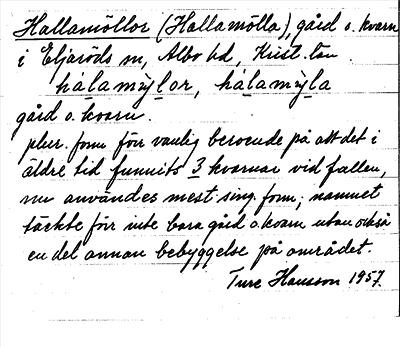 Hallamöllor (Hallamölla), gård o. kvarn
i Eljaröds sn, Albo hd, Krist. län.
hálamỳlor, hálamỳla
gård o. kvarn.
plur. form förr vanlig beroende på att det i
äldre tid funnits 3 kvarnar vid fallen,
nu användes mest sing. form; namnet
täckte förr inte bara gård o. kvarn utan också
en del annan bebyggelse på området.
Ture Hansson 1957.